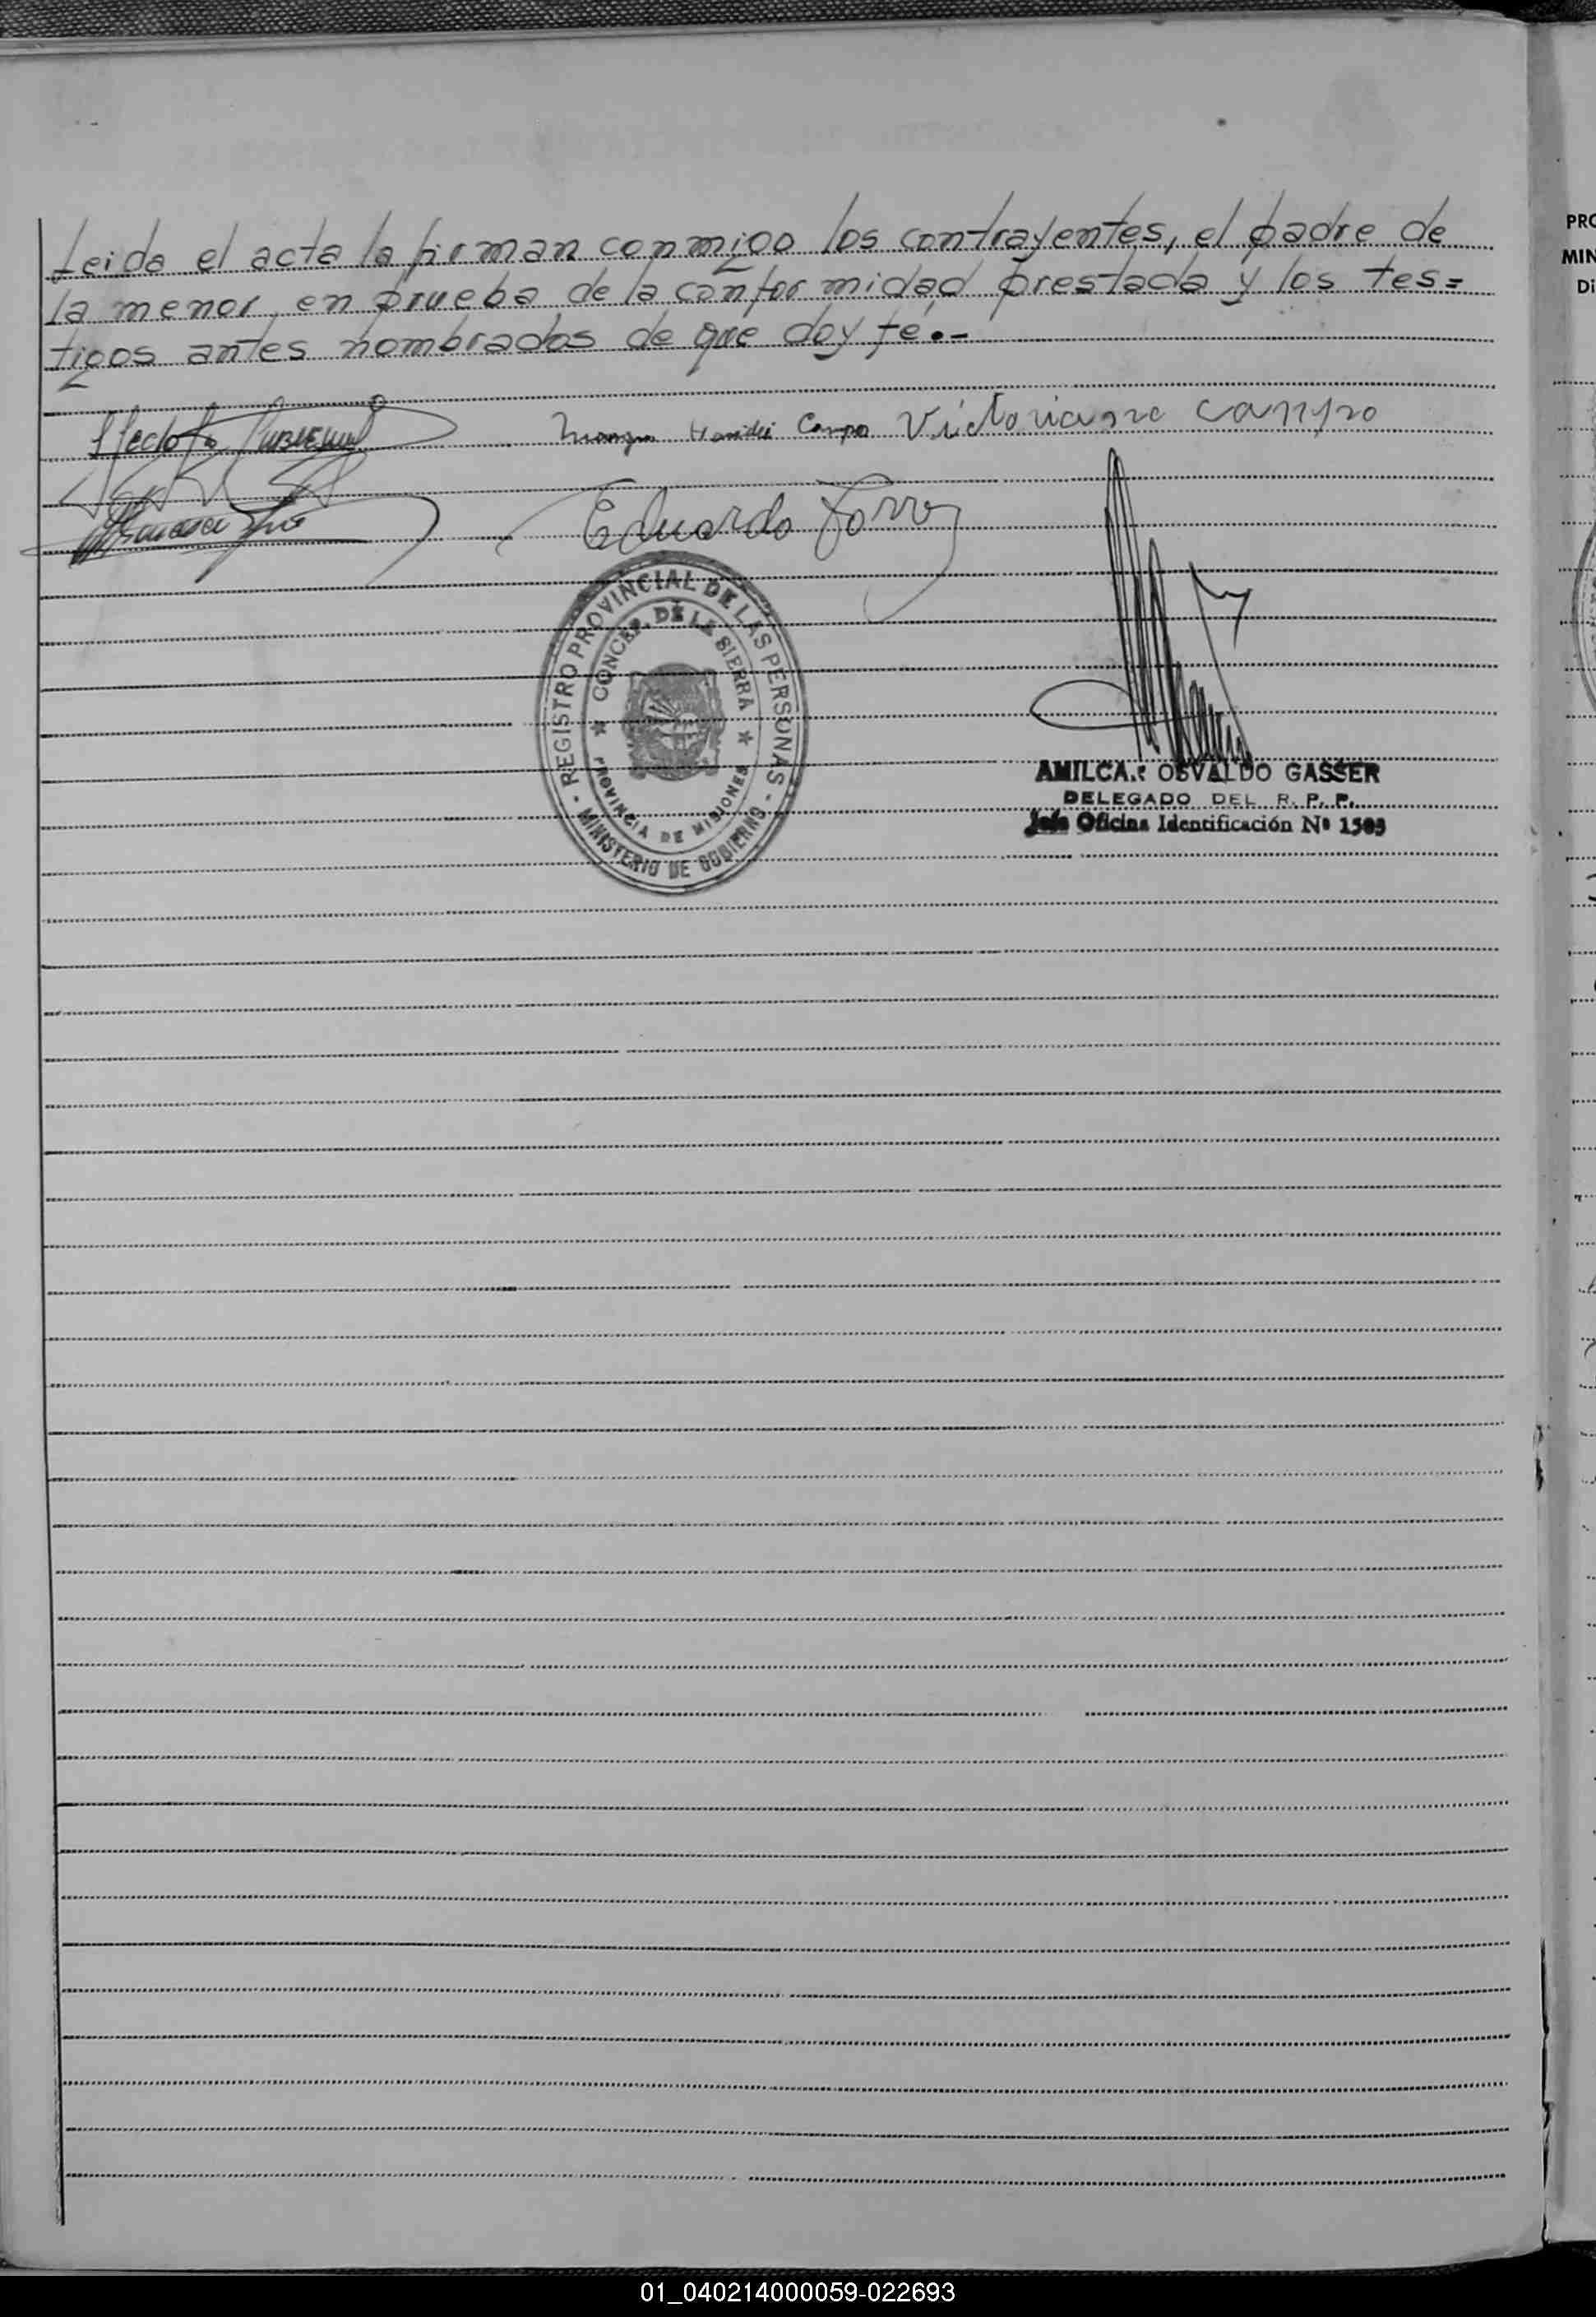 Leida el acta la firman conmigo los contrayentes, el padre de
la menor, en prueba de la conformidad prestada y los tes=
tigos antes nombrados de que doy fé.-
Campo Victoriano Campo
Eduardo
- REGISTRO PROVINCIAL DE LAS PERSONAS -
MINISTERIO DE GOBIERNO
★ CONCEP. DE LA SIERRA ★
PROVINCIA DE MISIONES
AMILCAR OSVALDO GASSER
DELEGADO DEL R. P. P.
Jefe Oficina Identificación Nº 1509
PRO
MIN
Di
01_040214000059-022693